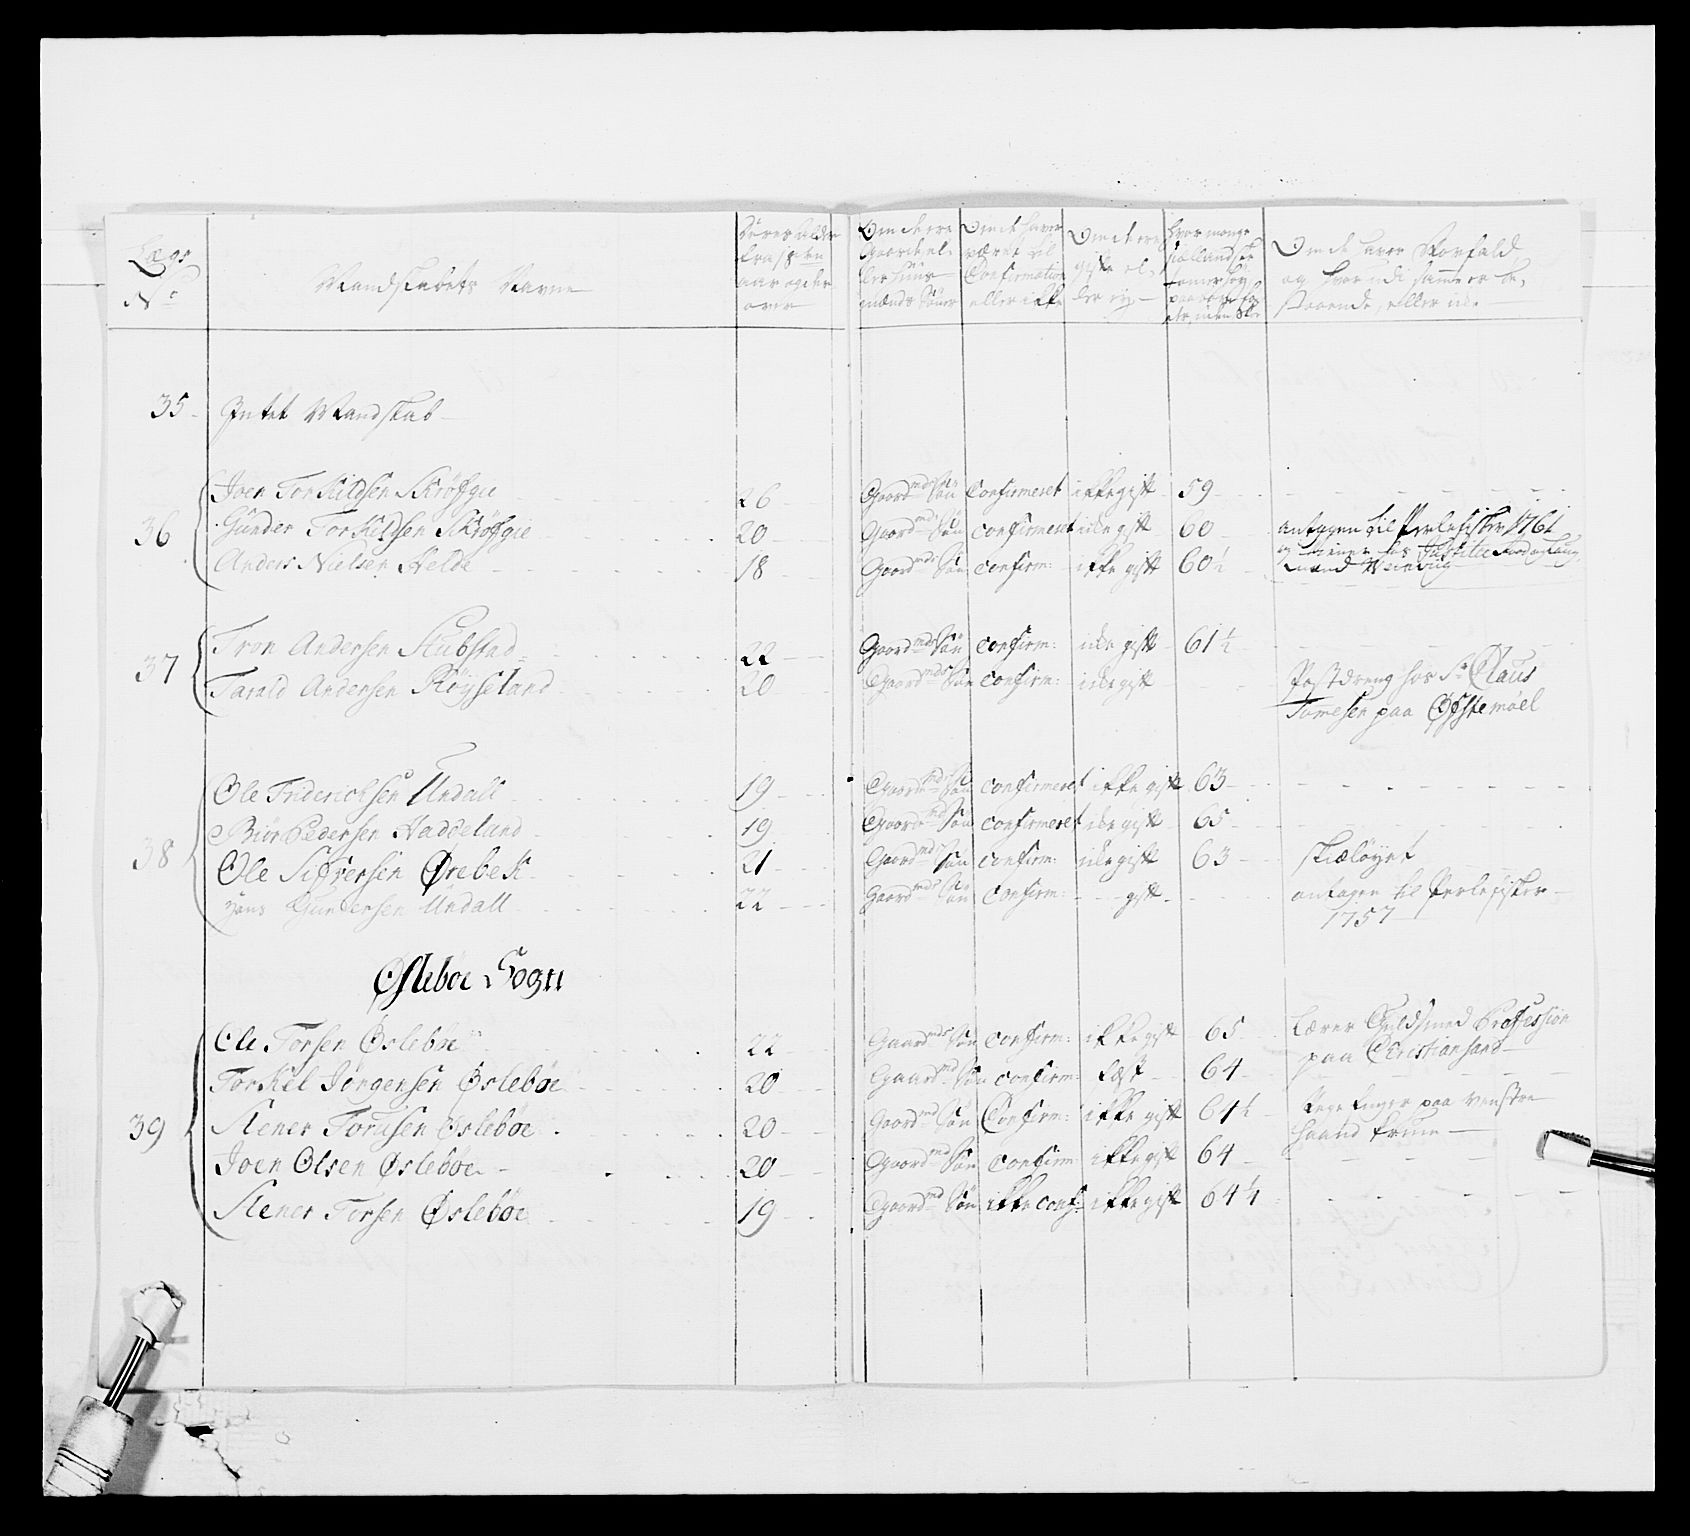 Lægs
No
Mandskabets Navne
Deres Alder
fra 18ten
aar og der
over
Om de ere
Gaarde el-
ler Huus-
mænds Sønner
Om de haver
været til
Confirmation
eller ikke
Om de ere
gifte el-
ler ey
Hvor mange
siællandske
tommer høy
Om de haver Forfald,
og hvor udi samme er be-
staaende, eller ikke
35 Intet Mandskab
36
Joen Torkildsen Skrøfgie 26 Gaardmds Søn Confirmeret ikke gift 59
Gunder Torkildsen Skrøfgie 20 Gaardmds Søn confirmeret ikke gift 60 antagen til Perlefisker 1761
Anders Nielsen Helde 18 Gaardmds Søn confirm: ikke gift 60½
37
Tron Andersen Stubstad 22 Gaardmds Søn confirm: ikke gift 61½
Tarald Andersen Røyseland 20 Gaardmds Søn confirm: ikke gift Postdreng hos Sr Claus
Tomesen paa Øfstemøel
38
Ole Fridericksen Undall 19 Gaardmds Søn confirmeret ikke gift 63
Biør Pedersen Haddeland 19 Gaardmds Søn confirmeret ikke gift 65
Ole Sifversen Ørebek 21 Gaardmds Søn confirm: ikke gift 63 skieløyet
Hans Gundersen Undall 22 Gaardmds Søn confirm: gift antagen til Perlefisker
1757
Øslebøe Sogn
39
Ole Torsen Øslebøe 22 Gaardmds Søn confirm: ikke gift 65 lærer Guldsmed Profession
paa Christiansand
Torkel Jørgensen Øslebøe 20 Gaardmd Søn confirm: fæst 64
Stener Torusen Øslebøe 20 Gaardmd Søn Confirm: ikke gift 64½ Pege finger paa venstre
haand krum
Joen Olsen Øslebøe 20 Gaardmd Søn confirm: ikke gift 64
Stener Torsen Øslebøe 19 Gaardmd Søn ikke conf: ikke gift 64¼